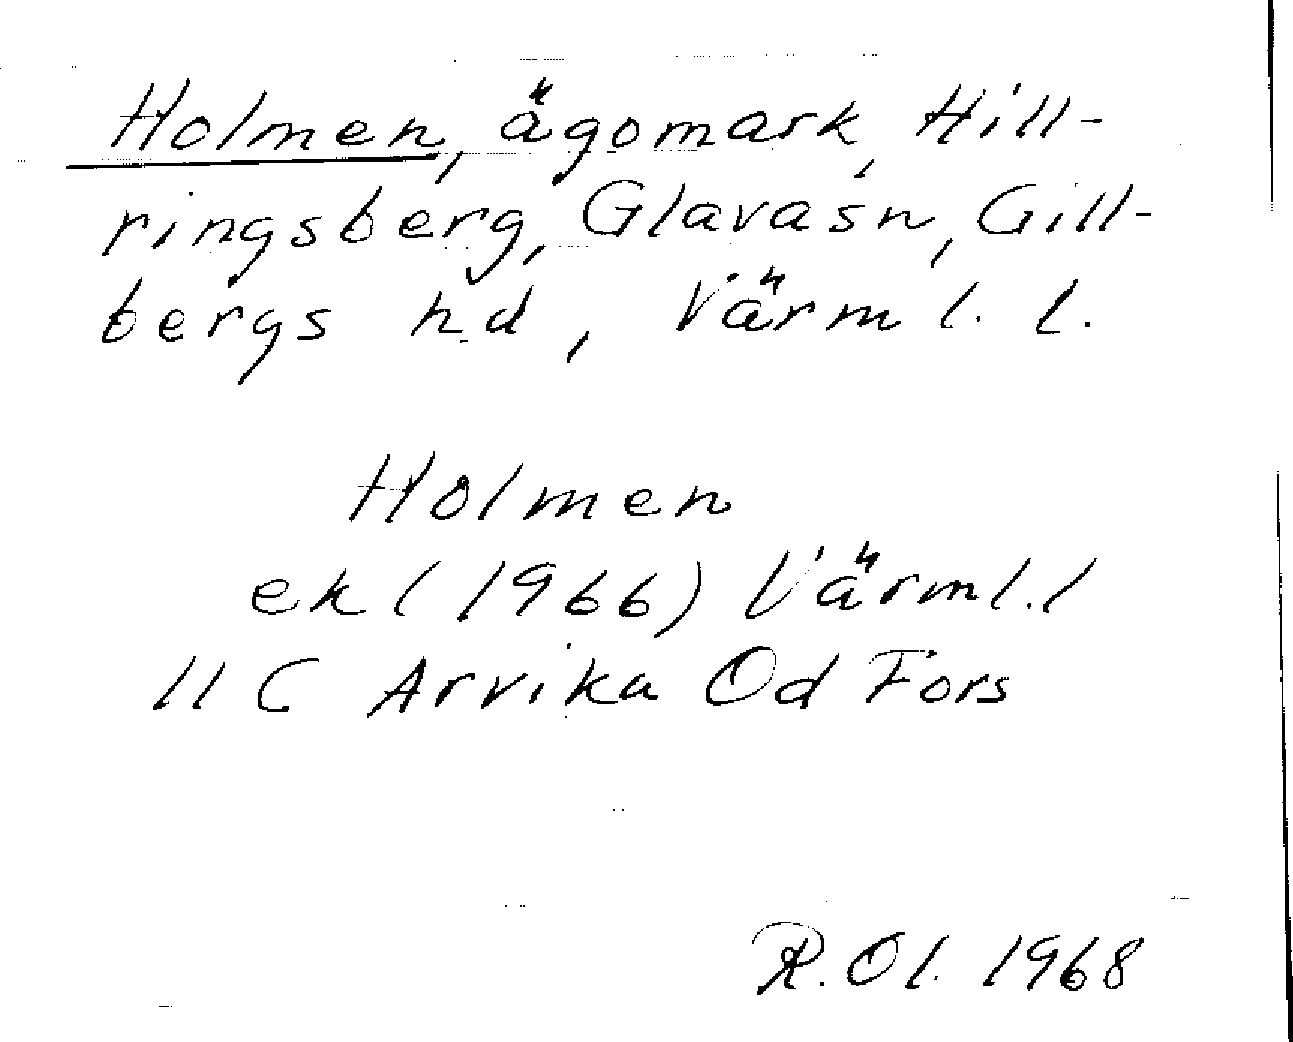 Holmen, ägomark, Hill-
ringsberg, Glava sn, Gill-
bergs hd, Värml. l.
Holmen
ek (1966) Värml. l
11 C Arvika Od Fors
R. Ol. 1968